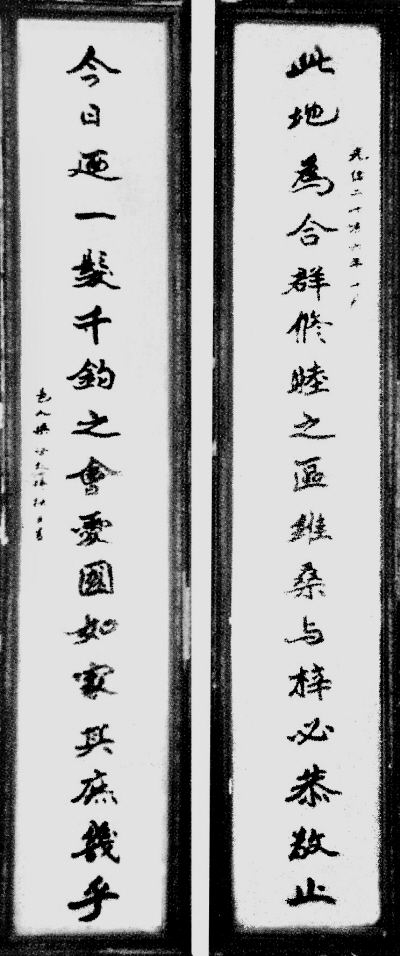 光緒二十六年十
此地為合群修睦之區維桑与梓必恭敬止
今日迺一髮千鈞之會愛國如家其庶幾乎
邑人梁書